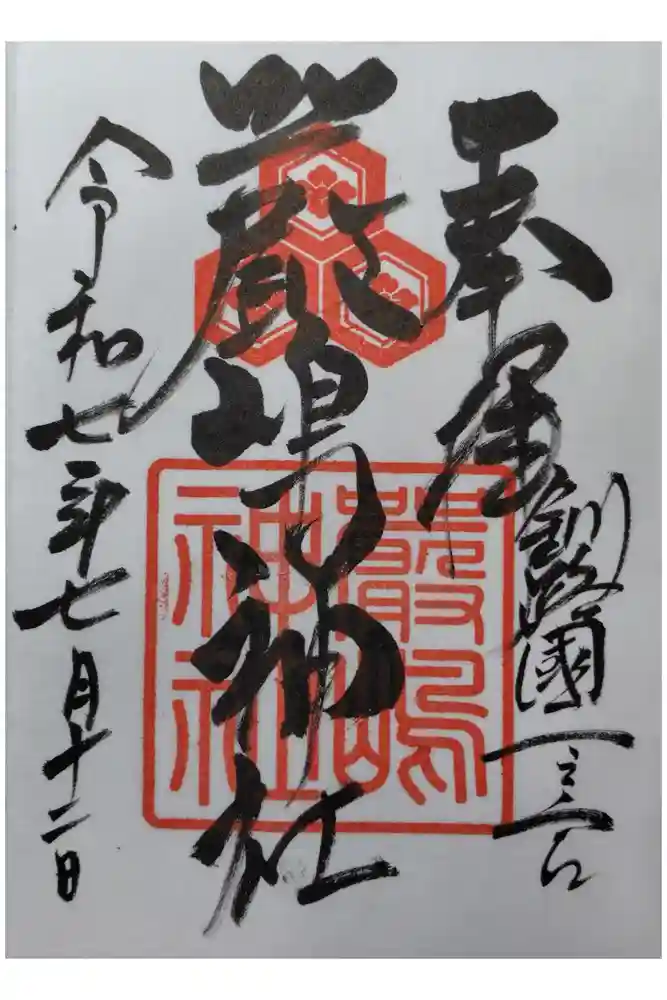 奉拝
釧路國一之宮
厳嶋神社
嚴嶋神社
令和七年七月十二日